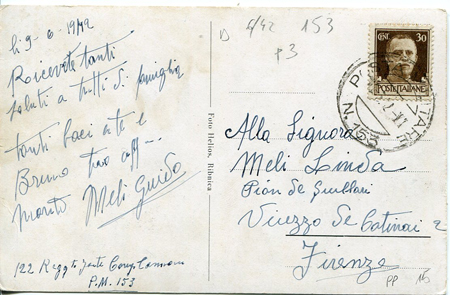 li 9-6-1942
Ricevete tanti
saluti a tutti di famiglia
tanti baci a te e
Bruno tuo aff—
marito Meli Guido
122 Regg.to Comp. Cannoni
P.M. 153
Foto Helios, Ribnica
6/42 153
P3
CENT. 30
POSTE ITALIANE
N. 153
Alla Signora
Meli Linda
Pian de Giullari
Viuzzo de Catinai 2
Firenze
PP